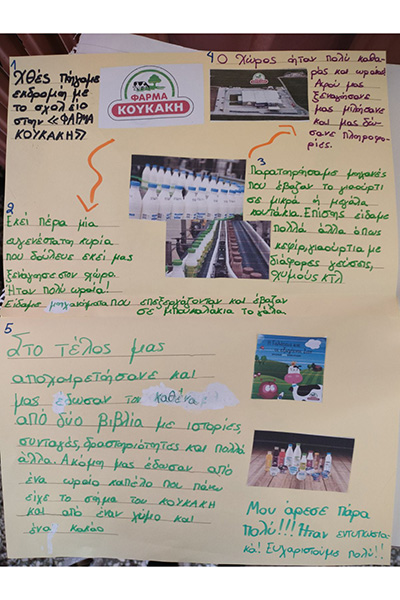 1
Χθές πήγαμε
εκδρομή με
το σχολείο
στην «ΦΑΡΜΑ
ΚΟΥΚΑΚΗ»
ΦΑΡΜΑ
ΚΟΥΚΑΚΗ
2
Εκεί πέρα μία
ευγενέστατη κυρία
που δούλευε εκεί μας
ξενάγησε στον χώρο.
Ήταν πολύ ωραία!
Είδαμε μηχανήματα που επεξεργάζονταν και έβαζαν
σε μπουκαλάκια το γάλα.
3
Παρατηρήσαμε μηχανές
που έβαζαν το γιαούρτι
σε μικρά ή μεγάλα
κουτάκια. Επίσης είδαμε
πολλά άλλα όπως
κεφίρ, γιαούρτια με
διάφορες γεύσεις,
χυμούς κτλ.
4 Ο χώρος ήταν πολύ καθα-
ρός και ωραίος!
Αφού μας
ξενάγησανε
μας μίλησανε
και μας δώ-
σανε πληροφο-
ρίες.
5
Στο τέλος μας
αποχαιρετήσανε και
μας έδωσαν του καθένα
από δύο βιβλία με ιστορίες,
συνταγές, δραστηριότητες και πολλά
άλλα. Ακόμη μας έδωσαν από
ένα ωραίο καπέλο που πάνω
είχε το σήμα του ΚΟΥΚΑΚΗ
και από έναν χυμό και
ένα κακάο
Μου άρεσε πάρα
πολύ!!! Ήταν εντυπωσια-
κά! Ευχαριστούμε πολύ!!